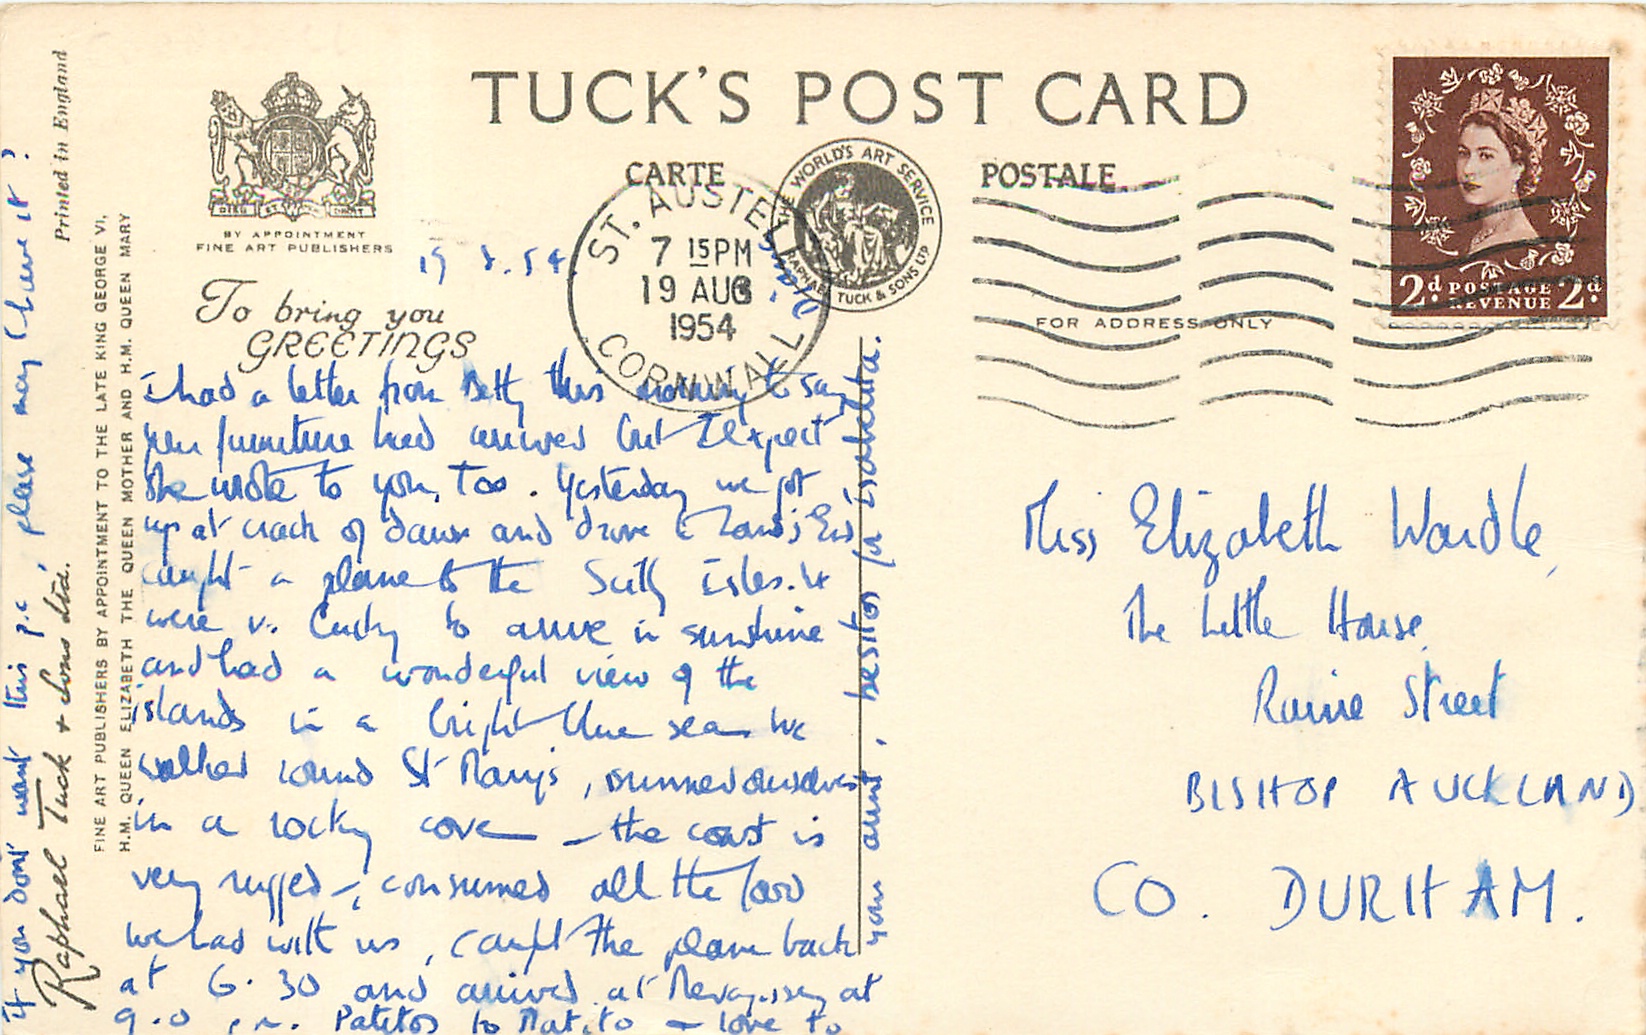 TUCK'S POST CARD
CARTE POSTALE
DIEU ET MON DROIT
BY APPOINTMENT
FINE ART PUBLISHERS
To bring you
GREETINGS
THE WORLD'S ART SERVICE
RAPHAEL TUCK & SONS LTD
ST. AUSTELL
7 15PM
19 AUG
1954
CORNWALL
2d POSTAGE 2d
REVENUE
FOR ADDRESS ONLY
Printed in England
FINE ART PUBLISHERS BY APPOINTMENT TO THE LATE KING GEORGE VI,
H.M. QUEEN ELIZABETH THE QUEEN MOTHER AND H.M. QUEEN MARY
Raphael Tuck & Sons Ltd.
19 8.54.
I had a letter from Betty this morning to say
your furniture had arrived but I expect
she wrote to you, too. Yesterday we got
up at crack of dawn and drove to Land's End
caught a plane to the Scilly Isles. We
were v. lucky to arrive in sunshine
and had a wonderful view of the
islands in a bright blue sea. We
walked round St Mary's, sunned ourselves
in a rocky cove – the coast is
very rugged –, consumed all the food
we had with us, caught the plane back
at 6.30 and arrived at Mevagissey at
9.0 p.m. Patitos to Matito – love to
your aunt, besitos for Isabelita.
If you don't want this p.c, please may I have it?
Miss Elizabeth Wardle,
The Little House,
Raine Street
BISHOP AUCKLAND
CO. DURHAM.